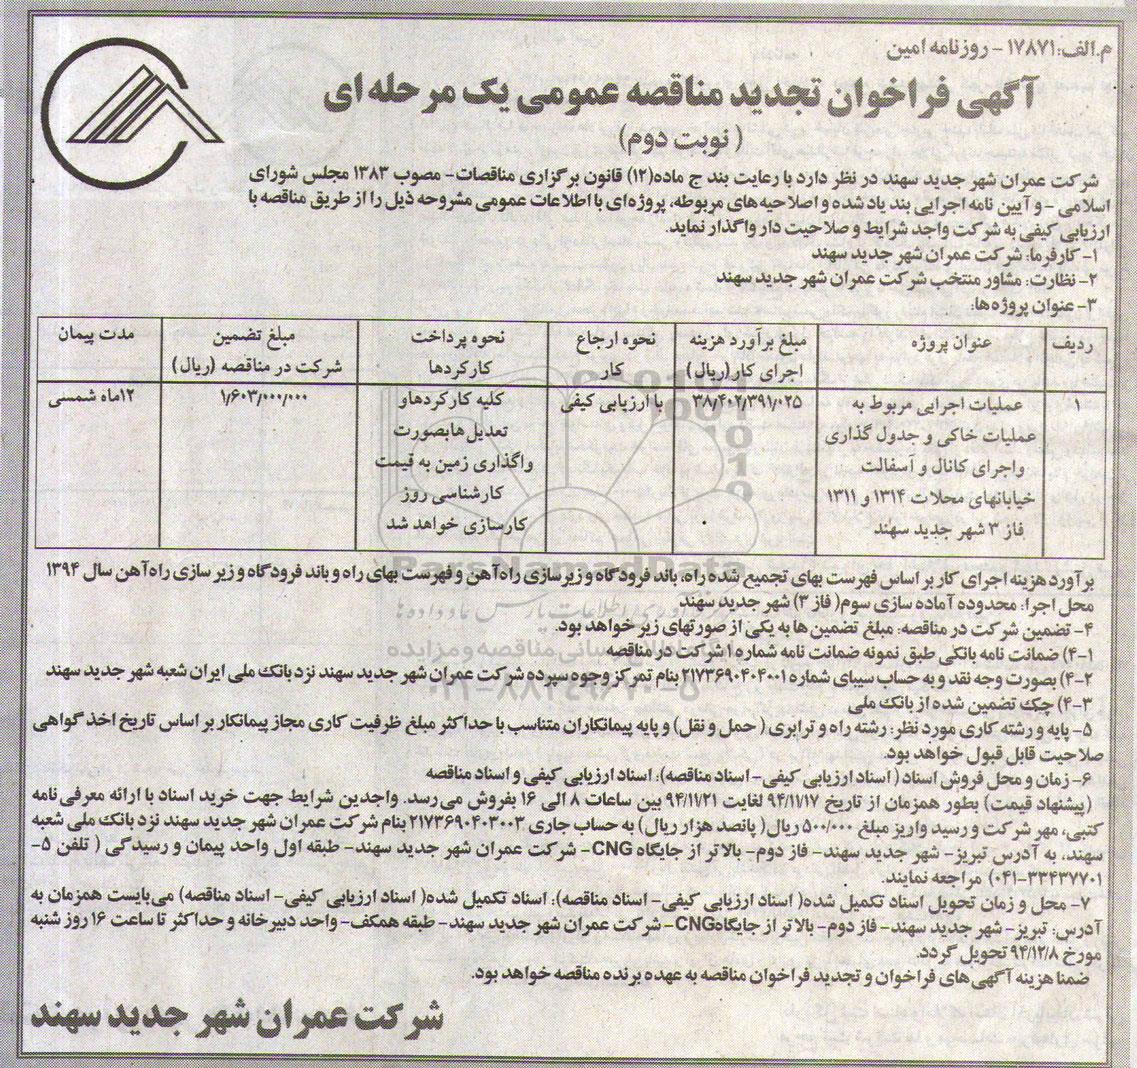 م.الف: ۱۷۸۷۱ - روزنامه امین
آگهی فراخوان تجدید مناقصه عمومی یک مرحله ای
( نوبت دوم)
شرکت عمران شهر جدید سهند در نظر دارد با رعایت بند ج ماده(۱۲) قانون برگزاری مناقصات- مصوب ۱۳۸۳ مجلس شورای
اسلامی - و آیین نامه اجرایی بند یاد شده و اصلاحیه های مربوطه، پروژه‌ای با اطلاعات عمومی مشروحه ذیل را از طریق مناقصه با
ارزیابی کیفی به شرکت واجد شرایط و صلاحیت دار واگذار نماید.
۱- کارفرما: شرکت عمران شهر جدید سهند
۲- نظارت: مشاور منتخب شرکت عمران شهر جدید سهند
۳- عنوان پروژه ها:
ردیف
عنوان پروژه
مبلغ برآورد هزینه
اجرای کار(ریال)
نحوه ارجاع
کار
نحوه پرداخت
کارکردها
مبلغ تضمین
شرکت در مناقصه (ریال)
مدت پیمان
۱
عملیات اجرایی مربوط به
عملیات خاکی و جدول گذاری
واجرای کانال و آسفالت
خیابانهای محلات ۱۳۱۴ و ۱۳۱۱
فاز ۳ شهر جدید سهند
۳۸/۴۰۲/۳۹۱/۰۲۵
با ارزیابی کیفی
کلیه کارکردهاو
تعدیل هابصورت
واگذاری زمین به قیمت
کارشناسی روز
کارسازی خواهد شد
۱/۶۰۳/۰۰۰/۰۰۰
۱۲ماه شمسی
ParsNamadData
برآورد هزینه اجرای کار بر اساس فهرست بهای تجمیع شده راه، باند فرودگاه و زیرسازی راه آهن و فهرست بهای راه و باند فرودگاه و زیر سازی راه آهن سال ۱۳۹۴
محل اجرا: محدوده آماده سازی سوم( فاز ۳) شهر جدید سهند
۴- تضمین شرکت در مناقصه: مبلغ تضمین ها به یکی از صورتهای زیر خواهد بود.
۴-۱) ضمانت نامه بانکی طبق نمونه ضمانت نامه شماره ۱ شرکت در مناقصه
۴-۲) بصورت وجه نقد و به حساب سیبای شماره ۲۱۷۳۶۹۰۴۰۴۰۰۱ بنام تمرکز وجوه سپرده شرکت عمران شهر جدید سهند نزد بانک ملی ایران شعبه شهر جدید سهند
۴-۳) چک تضمین شده از بانک ملی
۵- پایه و رشته کاری مورد نظر: رشته راه و ترابری ( حمل و نقل) و پایه پیمانکاران متناسب با حداکثر مبلغ ظرفیت کاری مجاز پیمانکار بر اساس تاریخ اخذ گواهی
صلاحیت قابل قبول خواهد بود.
۶- زمان و محل فروش اسناد ( اسناد ارزیابی کیفی- اسناد مناقصه): اسناد ارزیابی کیفی و اسناد مناقصه
(پیشنهاد قیمت) بطور همزمان از تاریخ ۹۴/۱۱/۱۷ لغایت ۹۴/۱۱/۲۱ بین ساعات ۸ الی ۱۶ بفروش می رسد. واجدین شرایط جهت خرید اسناد با ارائه معرفی نامه
کتبی، مهر شرکت و رسید واریز مبلغ ۵۰۰/۰۰۰ ریال( پانصد هزار ریال) به حساب جاری ۲۱۷۳۶۹۰۴۰۳۰۰۳ بنام شرکت عمران شهر جدید سهند نزد بانک ملی شعبه
سهند، به آدرس تبریز- شهر جدید سهند- فاز دوم- بالا تر از جایگاه CNG- شرکت عمران شهر جدید سهند- طبقه اول واحد پیمان و رسیدگی ( تلفن ۵-
۰۴۱-۳۳۴۳۷۷۰۱) مراجعه نمایند.
۷- محل و زمان تحویل اسناد تکمیل شده( اسناد ارزیابی کیفی- اسناد مناقصه): اسناد تکمیل شده( اسناد ارزیابی کیفی- اسناد مناقصه) می‌بایست همزمان به
آدرس: تبریز- شهر جدید سهند- فاز دوم- بالا تر از جایگاهCNG- شرکت عمران شهر جدید سهند- طبقه همکف- واحد دبیرخانه و حداکثر تا ساعت ۱۶ روز شنبه
مورخ ۹۴/۱۲/۸ تحویل گردد.
ضمنا هزینه آگهی های فراخوان و تجدید فراخوان مناقصه به عهده برنده مناقصه خواهد بود.
شرکت عمران شهر جدید سهند